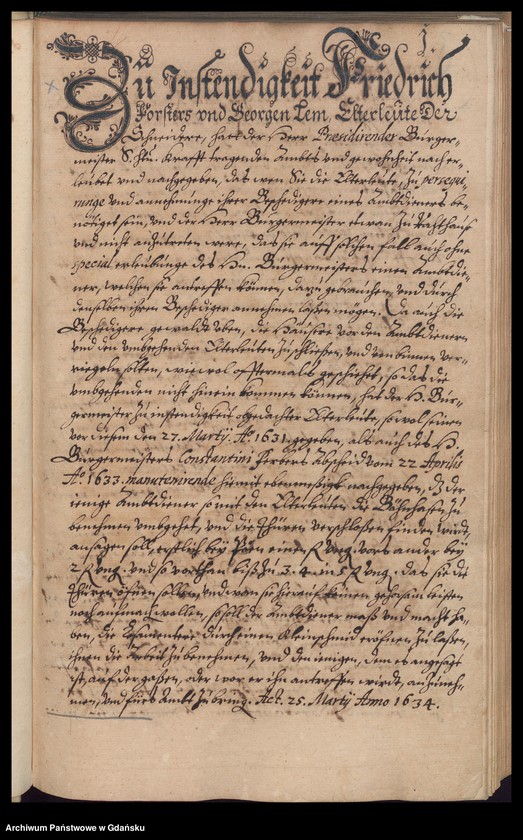 1.
Zu Instendigkeit Friedrich
Forsters vnd Georgen Lem, Elterleute der
Schneidere, hatt der Herr Presidirender Bürger-
meister tragenden Ambtes vnd gewohnheit nach er-
leubet vnd nachgegeben, das wen Sie die Elterleute, zu persequi-
runge vnd annehmunge ihrer Beschedigere eines Ambtdieners be-
nötiget sein, vnd der Herr Bürgermeister etwan zu Rahthaus
vnd nicht anzutreten were, das sie auff solchen fall auch ohne
special erleubunge des Hn. Bürgermeisters einen Ambtdie-
ner, welchen sie antreffen können, dazu gebrauchen, vnd durch
denselben ihren Beschediger annehmen laßen mögen. Da auch die
Beschedigere gewaldt üben, die Häuser vor den Ambtdienern
vnd den vmbgehenden Elterleuten zuschließen, vnd von binnen ver-
riegeln solten, wie wol offtermals geschiehet, so das die
vmbgehenden nicht hinein kommen können, hat der H. Bür-
germeister zu instendigkeit obgedachter Elterleute, so wol seinen
vor diesem den 27. Martij. Ao. 1631. gegeben, als auch des H.
Bürgermeisters Constantini Ferbers Abscheid vom 22 Aprilis
Ao. 1633. manutenirende hiemit ebenmeßigk nachgegeben, dz der
ienige Ambtdiener so mit den Elterleuten die Böhnhasen zu
benehmen vmbgehet, vnd die Thüren verschloßen finden wirdt,
ansagen soll, erstlich bey Pöen einen Vng. vors ander bey
2 Vng. vnd so vorthan biß zu 3. 4. in 5 Vng. das sie die
Thüren öfnen sollen, vnd wan sie hierauf keinen gehorsam leisten
noch aufmachen wollen, so soll der Ambtdiener maß vnd macht ha-
ben, die durch einen Kleinschmid eröfnen zu laßen,
ihnen die Arbeit zu benehmen, vnd den ienigen, dem es angesagt
ist, auf der gaßen, oder wor er ihn antreffen wirdt, anzuneh-
men, vnd fürs Ambt zu bring. Act. 25. Martij Anno 1634.
Archiwum Państwowe w Gdańsku